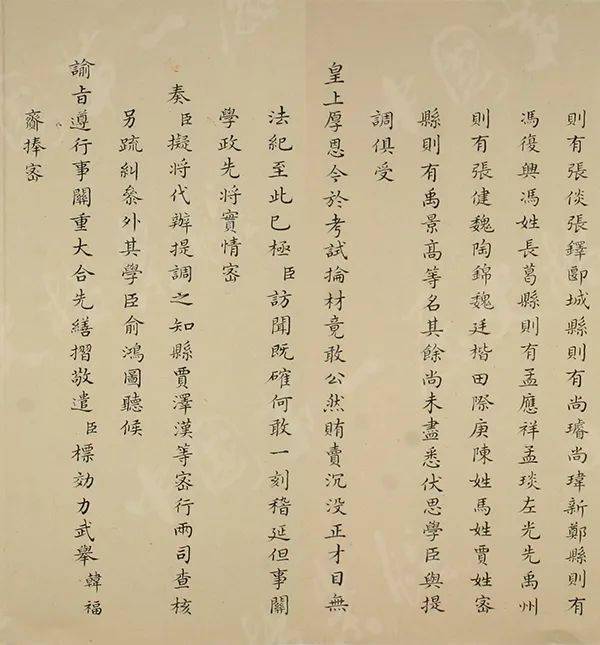 則有張倓張鐸郾城縣則有尚璿尚瑋新鄭縣則有
馮復興馮姓長葛縣則有孟應祥孟琰左光先禹州
則有張健魏陶錦魏廷楷田際庚陳姓馬姓賈姓密
縣則有禹景髙等名其餘尚未盡悉伏思學臣與提
調俱受
皇上厚恩令於考試掄材竟敢公然賄賣沉没正才目無
法紀至此已極臣訪聞既確何敢一刻稽延但事關
學政先將實情密
奏臣擬將代辦提調之知縣賈澤漢等密行兩司查核
另疏糾叅外其學臣俞鴻圖聽候
諭旨遵行事關重大合先繕摺敬遣臣標効力武舉韓福
齎捧密